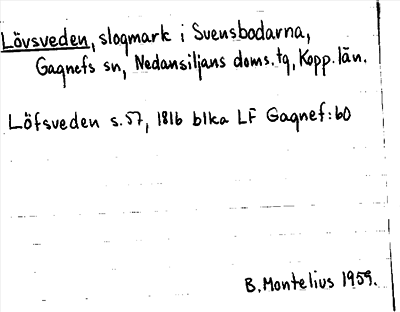 Lövsveden, slogmark i Svensbodarna,
Gagnefs sn, Nedansiljans doms.tg, Kopp.län.
Löfsveden s.57, 1816 blka LF Gagnef:60
B. Montelius 1959.